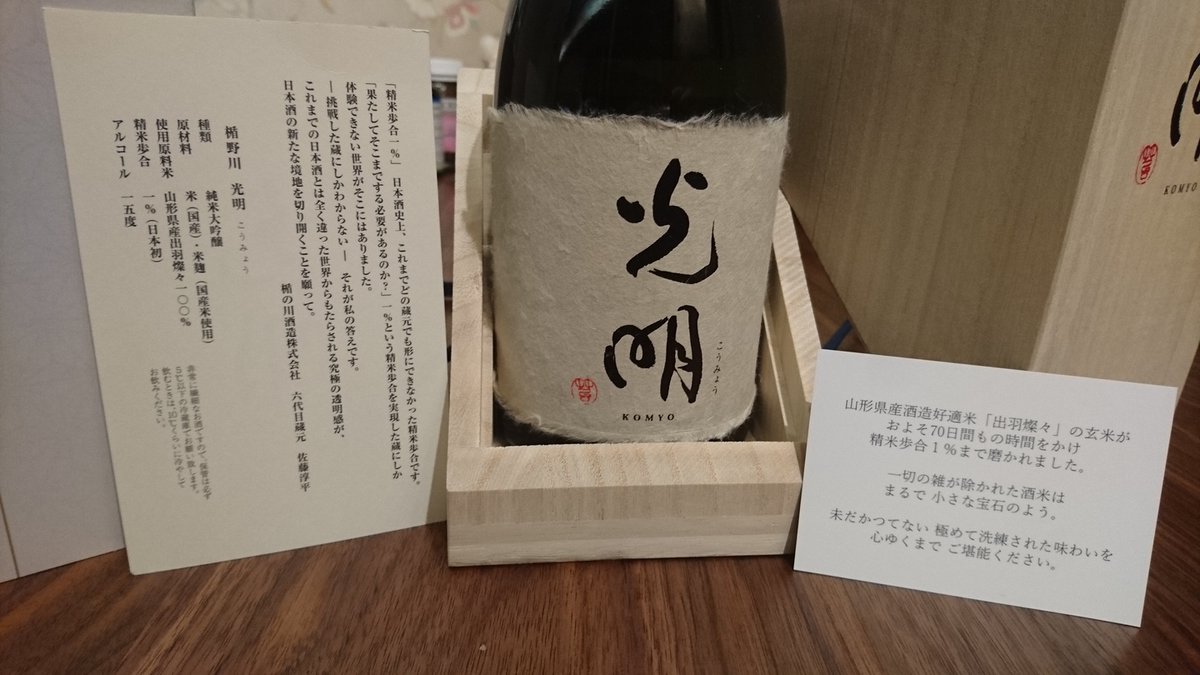 「精米歩合一%」 日本酒史上、これまでどの蔵元でも形にできなかった精米歩合です。
「果たしてそこまでする必要があるのか？」一%という精米歩合を実現した蔵にしか
体験できない世界がそこにはありました。
―挑戦した蔵にしかわからない― それが私の答えです。
これまでの日本酒とは全く違った世界からもたらされる究極の透明感が、
日本酒の新たな境地を切り開くことを願って。
楯の川酒造株式会社 六代目蔵元 佐藤淳平
楯野川 光明 こうみょう
種類 純米大吟醸
原材料 米（国産）・米麹（国産米使用）
使用原料米 山形県産出羽燦々一〇〇%
精米歩合 一%（日本初）
アルコール 一五度
非常に繊細なお酒ですので、保管は必ず
5℃以下の冷蔵庫でお願い致します。
飲むときは、10℃くらいに冷やして
お飲みください。
光明
こうみょう
KOMYO
KOMYO
山形県産酒造好適米「出羽燦々」の玄米が
およそ70日間もの時間をかけ
精米歩合１％まで磨かれました。
一切の雑が除かれた酒米は
まるで 小さな宝石のよう。
未だかつてない 極めて洗練された味わいを
心ゆくまで ご堪能ください。